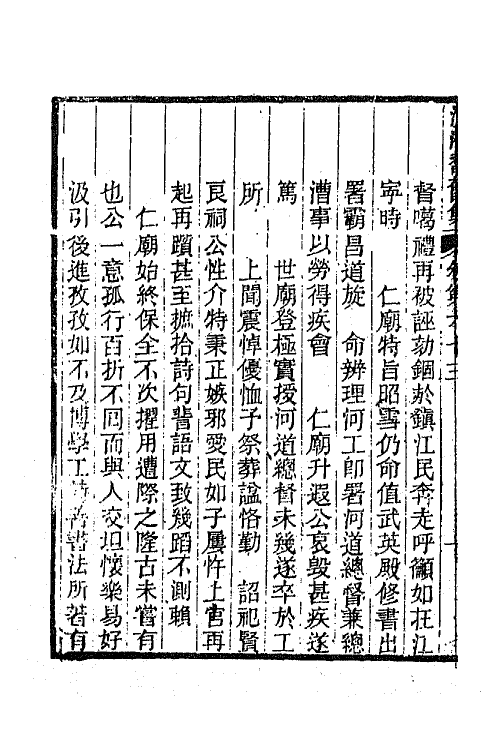 督噶禮再被誣劾錮於鎮江民奔走呼籲如在江
寧時　仁廟特旨昭雪仍命值武英殿修書出
署霸昌道旋　命辦理河工卽署河道總督兼總
漕事以勞得疾會　仁廟升遐公哀毀甚疾遂
篤　世廟登極實授河道總督未幾遂卒於工
所　上聞震悼優恤予祭葬諡恪勤　詔祀賢
良祠公性介特秉正嫉邪愛民如子屢忤上官再
起再躓甚至摭拾詩句蜚語文致幾蹈不測賴
仁廟始終保全不次擢用遭際之隆古未嘗有
也公一意孤行百折不回而與人交坦懷樂易好
汲引後進孜孜如不及博學工詩善書法所著有